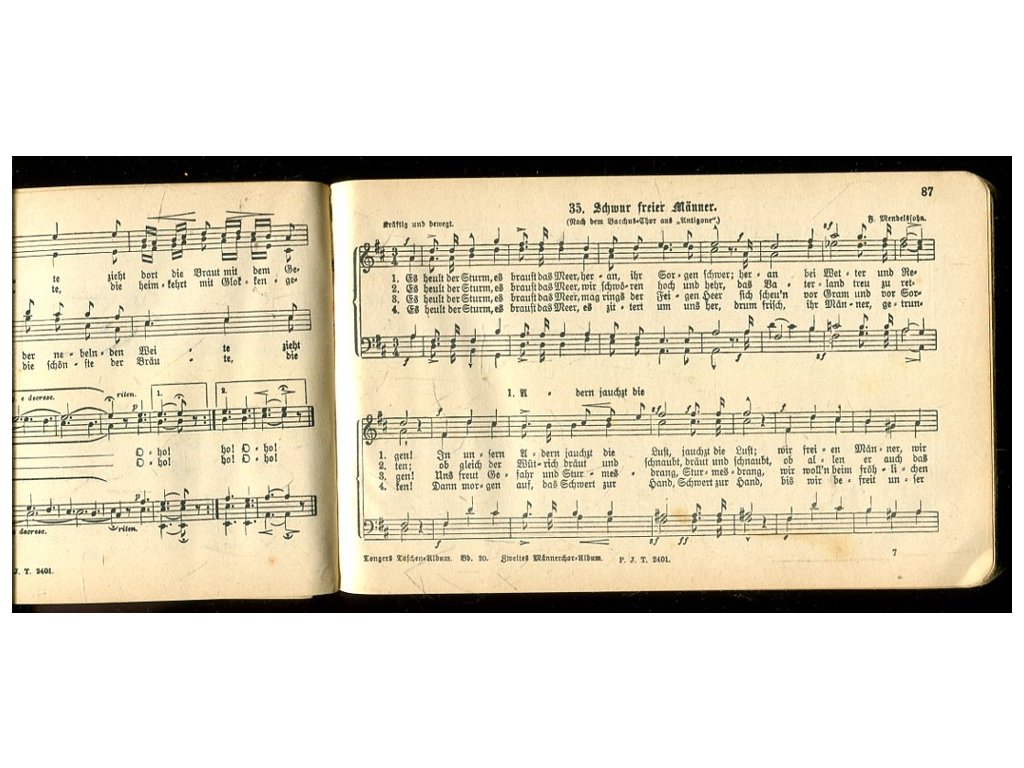 te zieht dort die Braut mit dem Ge-
te, die heim-kehrt mit Glok-ken-ge-
der ne-beln-den Wei - te zieht
die schön-ste der Bräu - te, die
e decresc.
riten.
p
1.
2.
O-ho! ho! O-ho!
O-ho! ho! O-ho!
decresc.
riten.
J. T. 2401.
87
35. Schwur freier Männer.
(Nach dem Bacchus-Chor aus „Antigone“.)
Kräftig und bewegt.
F. Mendelssohn.
1. Es heult der Sturm, es braust das Meer, her-an, ihr Sor-gen schwer; her-an bei Wet-ter und Re-
2. Es heult der Sturm, es braust das Meer, wir schwö-ren hoch und hehr, das Va-ter-land treu zu ret-
3. Es heult der Sturm, es braust das Meer, mag rings der Fei-gen Heer sich scheu'n vor Gram und vor Sor-
4. Es heult der Sturm, es braust das Meer, es zit-tert um uns her, drum frisch, ihr Män-ner, ge-trun-
1. A - dern jauchzt die
1. gen! In un-sern A-dern jauchzt die Lust, jauchzt die Lust; wir frei-en Män-ner, wir
2. ten; ob gleich der Wüt-rich dräut und schnaubt, dräut und schnaubt, ob al-len er auch das
3. gen! Uns freut Ge-fahr und Stur-mes-drang, Stur-mes-drang, wir woll'n beim fröh-li-chen
4. ken! Dann mor-gen auf, das Schwert zur Hand, Schwert zur Hand, bis wir be-freit un-ser
Tongers Taschen-Album. Bd. 20. Zweites Männerchor-Album. P. J. T. 2401.
7